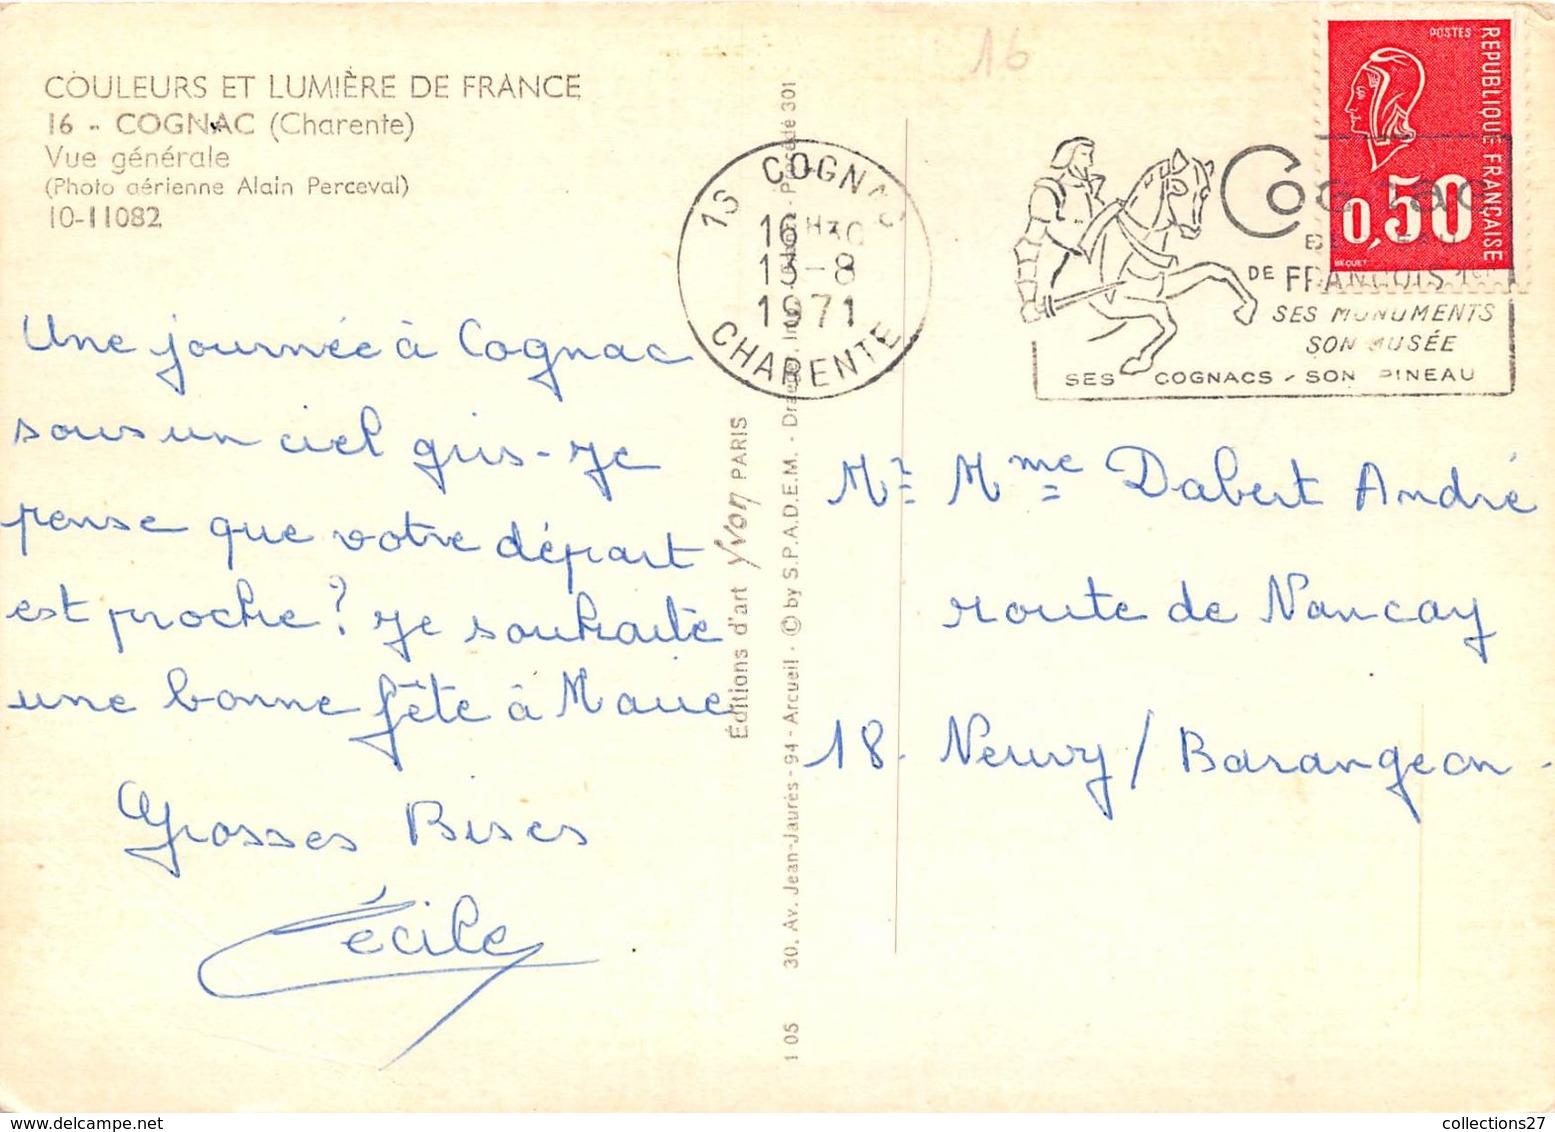 COULEURS ET LUMIÈRE DE FRANCE
16 - COGNAC (Charente)
Vue générale
(Photo aérienne Alain Perceval)
10-11082
Une journée à Cognac
sous un ciel gris - Je
pense que votre départ
est proche? Je souhaite
une bonne fête à Marie
Grosses Bises
Cécile
Éditions d'art Yvon PARIS
30, Av. Jean-Jaurès - 94 - Arcueil - © by S.P.A.D.E.M. - Draeger, Imp. - Procédé 301
1 05
16
16 COGNAC
16 H 30
13-8
1971
CHARENTE
Cognac
DE FRANCOIS 1er
SES MONUMENTS
SON MUSÉE
SES COGNACS - SON PINEAU
POSTES
REPUBLIQUE FRANÇAISE
0,50
BEQUET
Mr Mme Dabert André
route de Nancay
18. Neuvy / Barangeon.
collections27